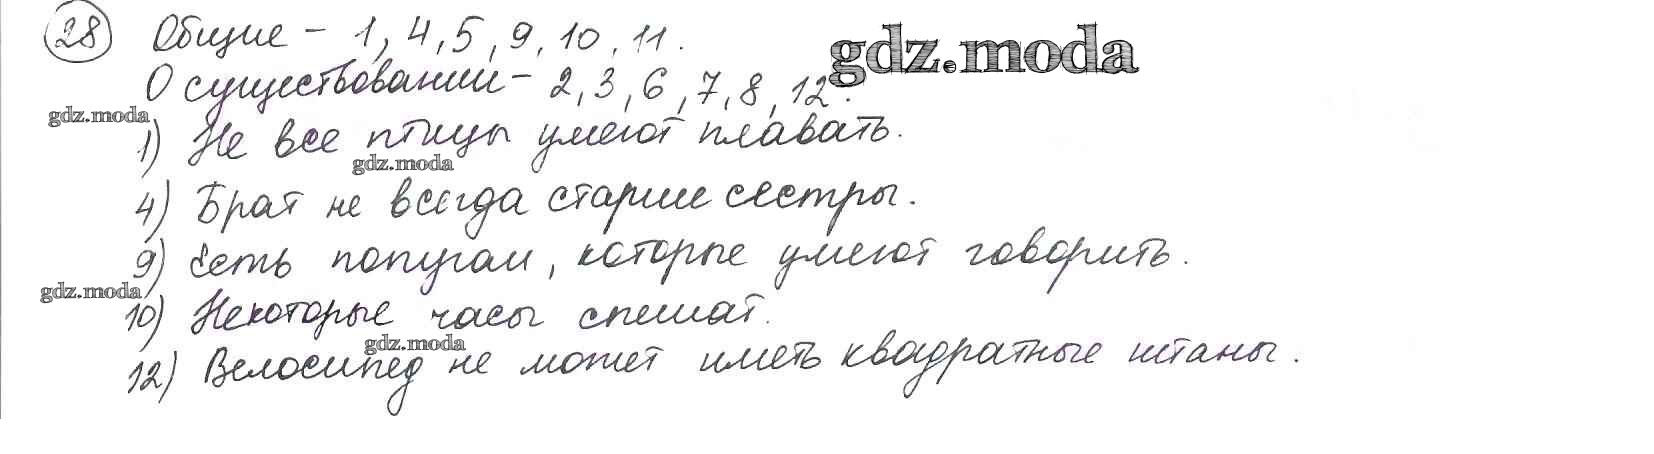 28 Общие - 1, 4, 5, 9, 10, 11.
gdz.moda
О существовании - 2, 3, 6, 7, 8, 12.
gdz.moda
1) Не все птицы умеют плавать.
gdz.moda
4) Брат не всегда старше сестры.
9) Есть попугаи, которые умеют говорить.
gdz.moda
10) Некоторые часы спешат.
gdz.moda
12) Велосипед не может иметь квадратные штаны.